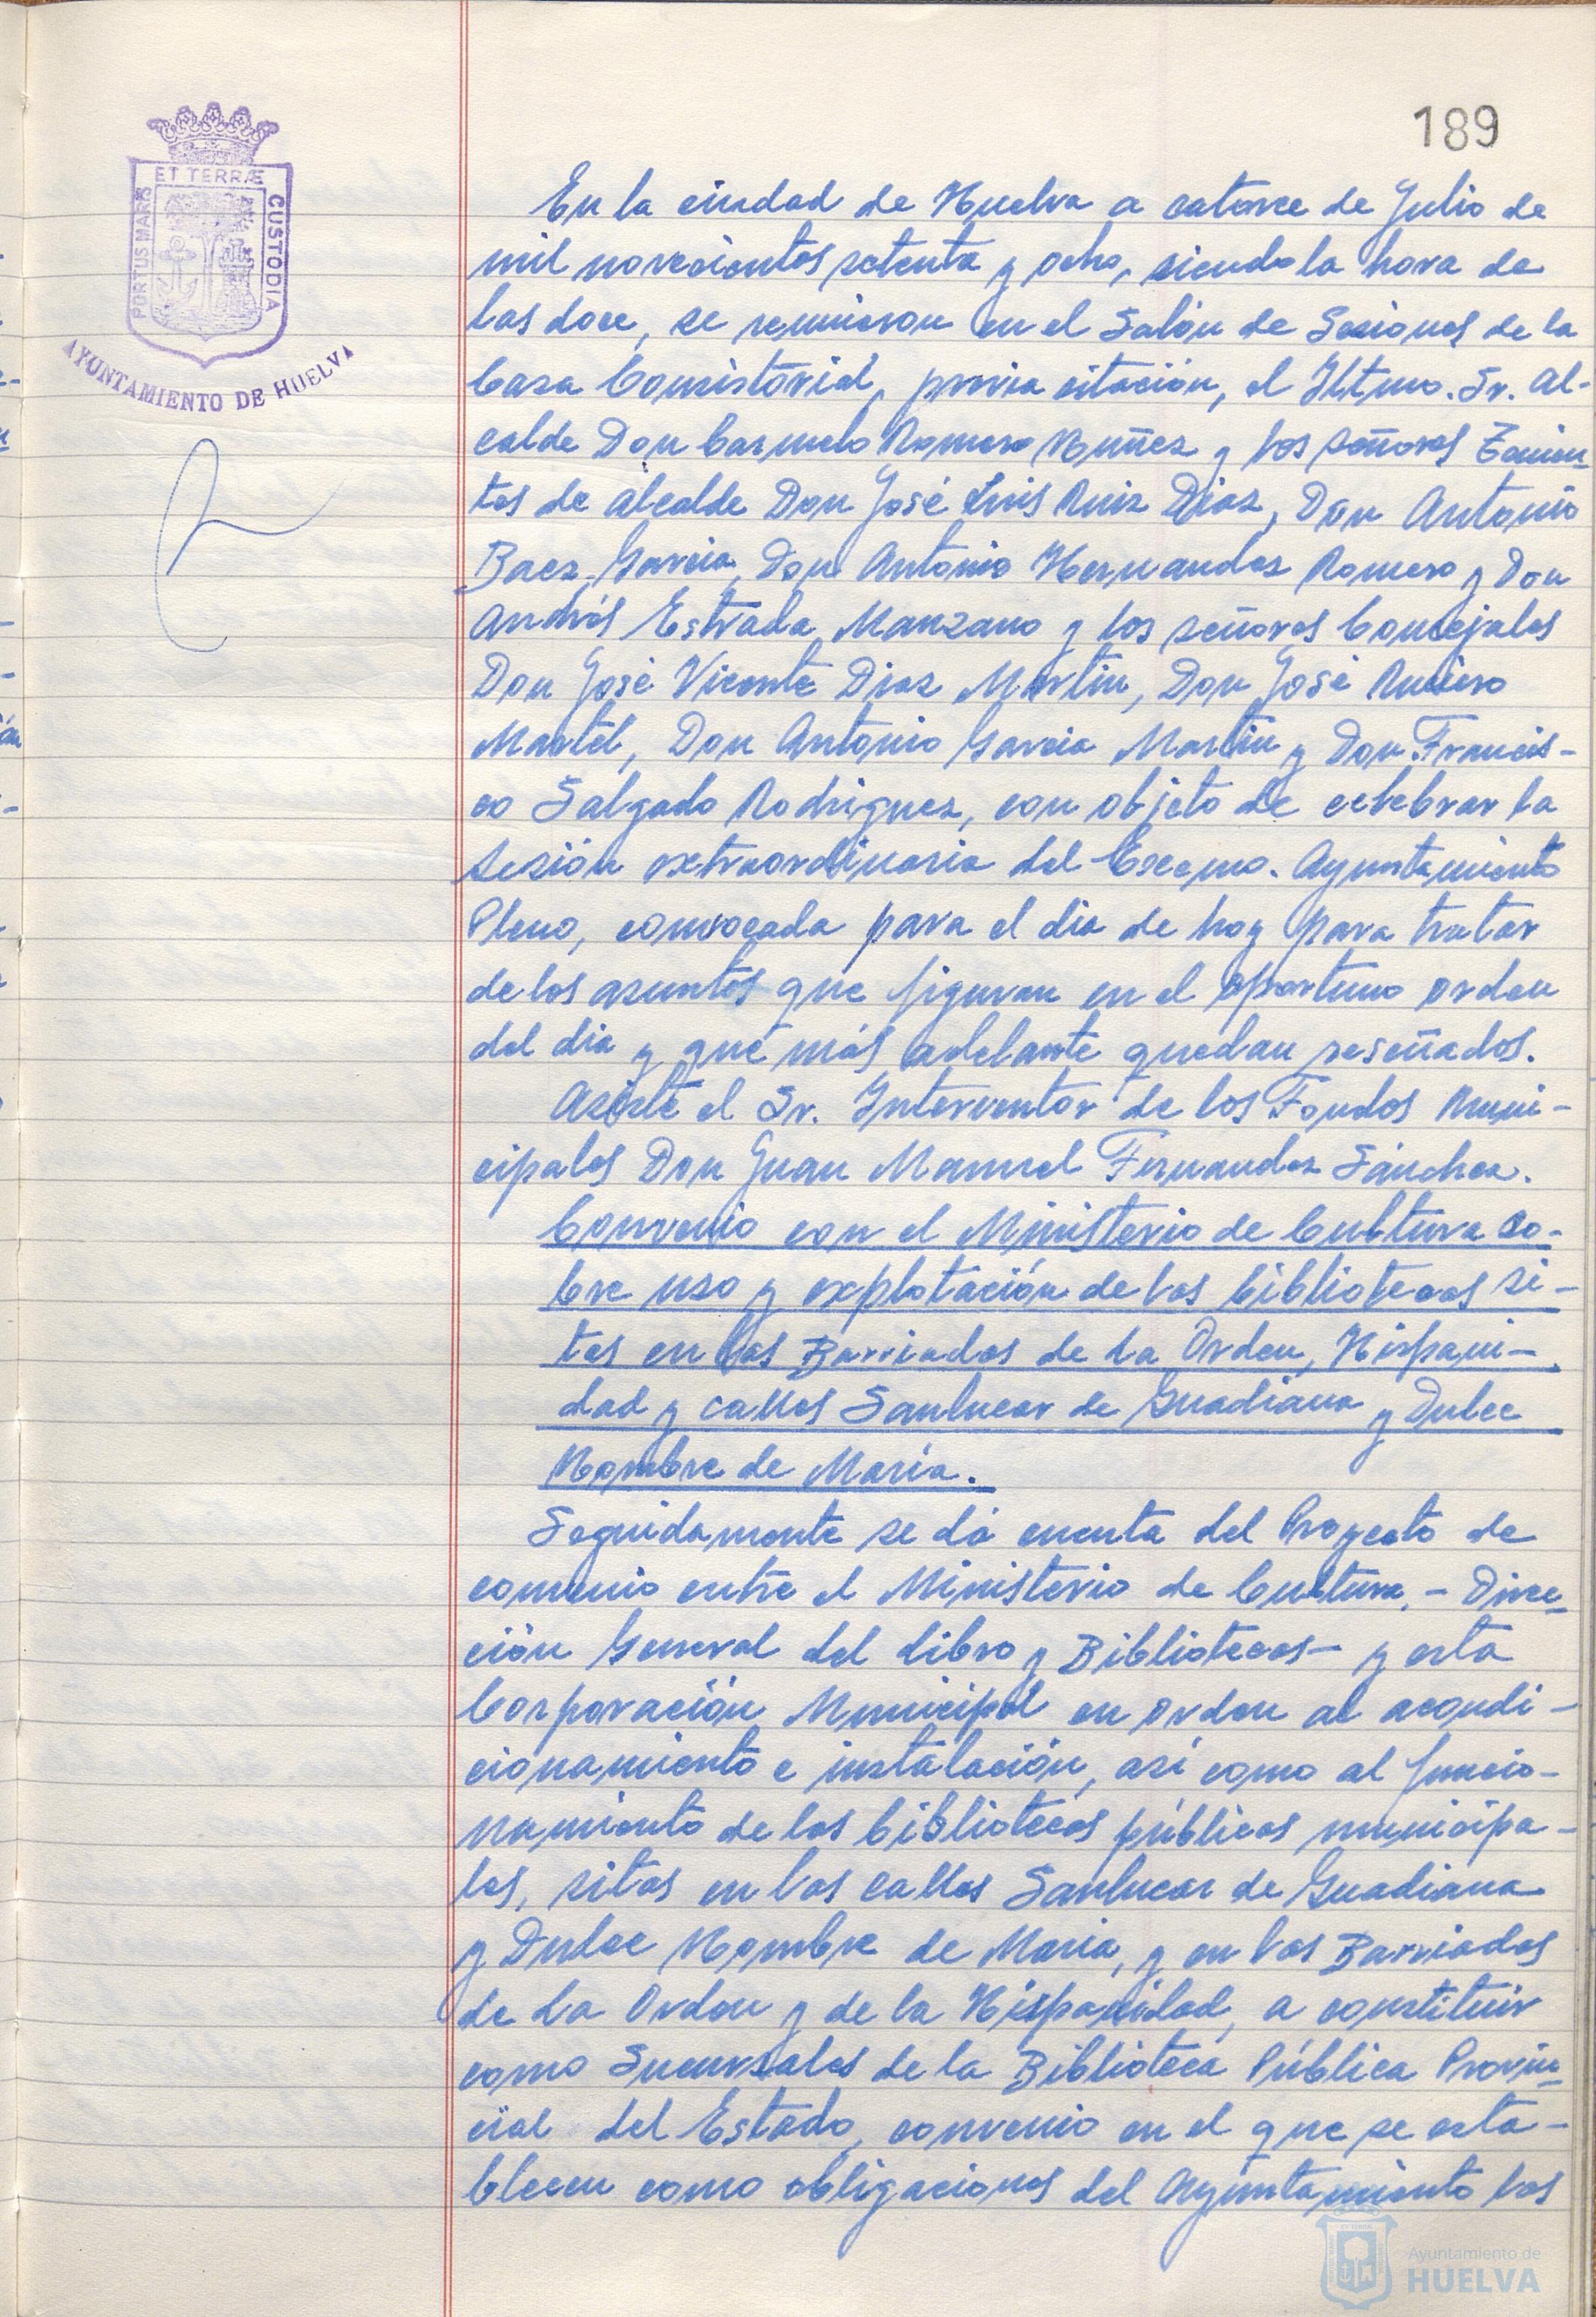 189
ET TERRÆ
PORTUS MARIS
CUSTODIA
AYUNTAMIENTO DE HUELVA
En la ciudad de Huelva a catorce de Julio de
mil novecientos setenta y ocho, siendo la hora de
las doce, se reunieron en el Salón de Sesiones de la
Casa Consistorial, previa citación, el Iltmo. Sr. Al-
calde Don Carmelo Romero Nuñez y los señores Tenien-
tes de Alcalde Don José Luis Ruiz Diaz, Don Antonio
Baez Garcia, Don Antonio Hernandez Romero y Don
Andrés Estrada Manzano y los señores Concejales
Don José Vicente Diaz Martin, Don José
Martel, Don Antonio Garcia Martin y Don Francis-
co Salgado Rodriguez, con objeto de celebrar la
sesión extraordinaria del Excmo. Ayuntamiento
Pleno, convocada para el dia de hoy para tratar
de los asuntos que figuran en el oportuno orden
del dia y que más adelante quedan reseñados.
Asiste el Sr. Interventor de los Fondos Muni-
cipales Don Juan Manuel Fernandez Sánchez.
Convenio con el Ministerio de Cultura so-
bre uso y explotación de las bibliotecas si-
tas en las Barriadas de La Orden, Hispani-
dad y calles Sanlucar de Guadiana y Dulce
Nombre de Maria.
Seguidamente se dá cuenta del Proyecto de
convenio entre el Ministerio de Cultura, - Direc-
ción General del Libro y Bibliotecas - y esta
Corporación Municipal en orden al acondi-
cionamiento e instalación, así como al funcio-
namiento de las bibliotecas públicas municipa-
les, sitas en las calles Sanlucar de Guadiana
y Dulce Nombre de Maria, y en las Barriadas
de La Orden y de la Hispanidad, a constituir
como Sucursales de la Biblioteca Pública Provin-
cial del Estado, convenio en el que se esta-
blecen como obligaciones del Ayuntamiento las
Ayuntamiento de
HUELVA